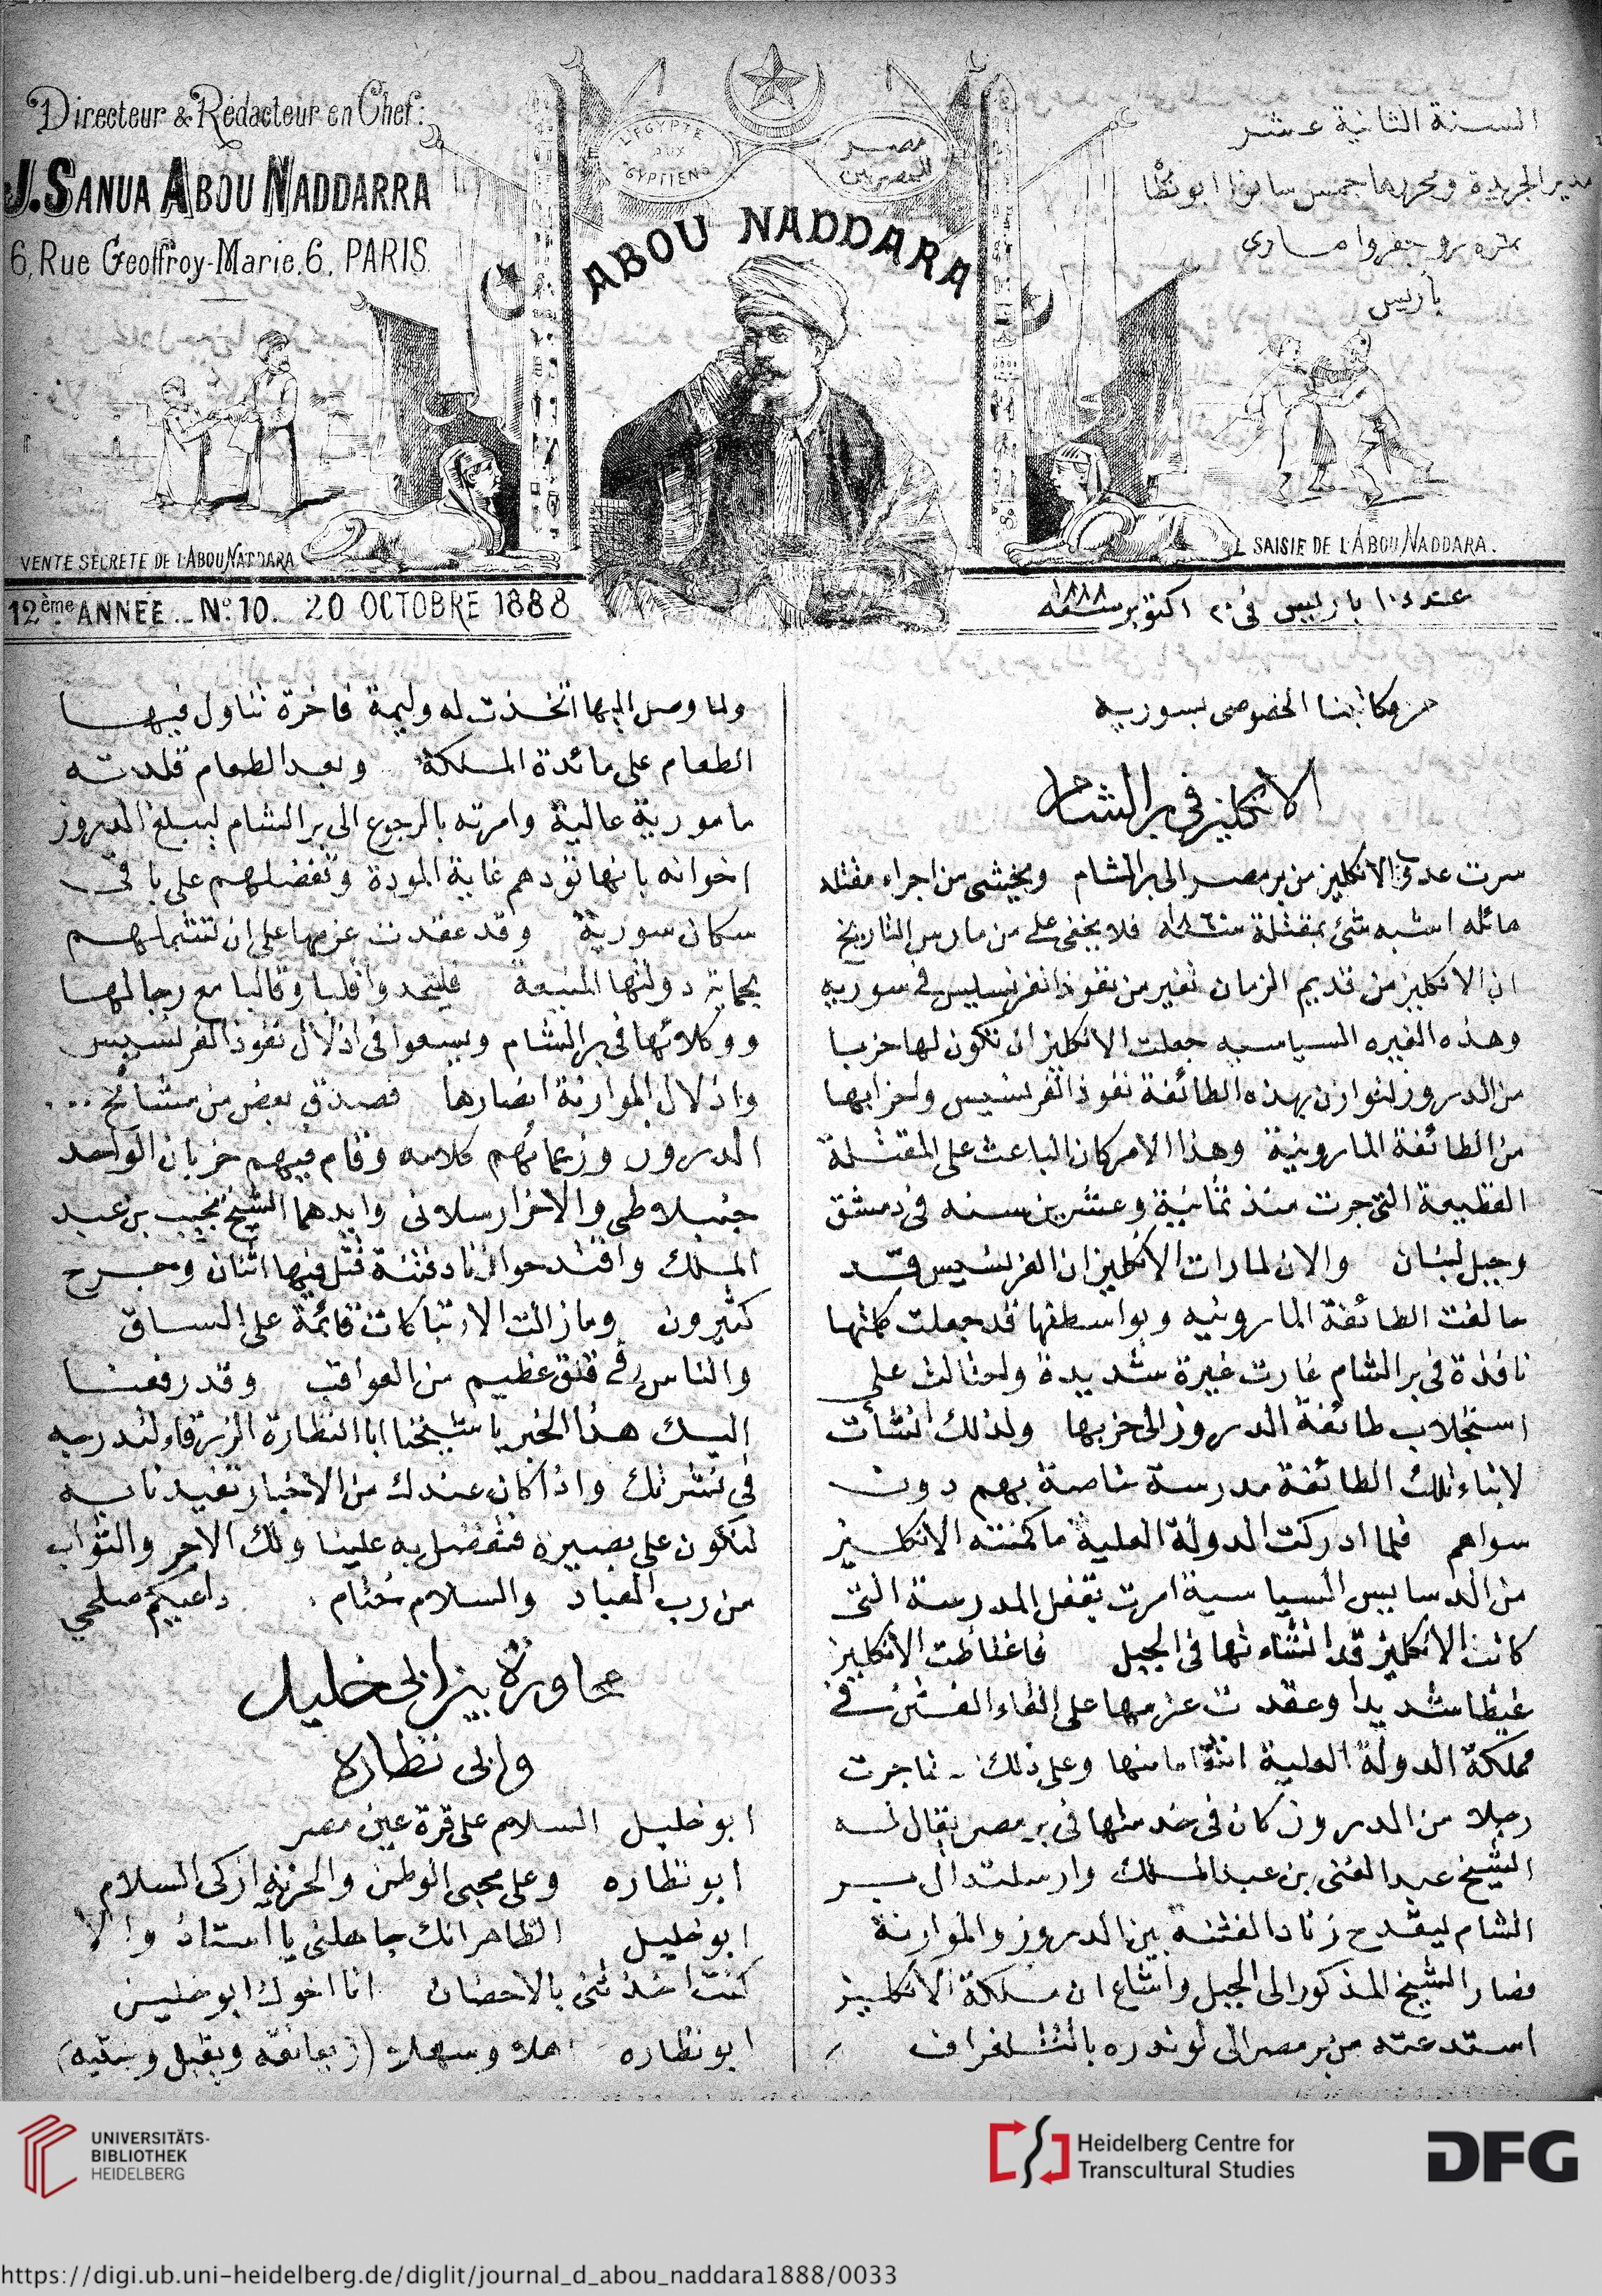 Directeur & Rédacteur en Chef:
J. SANUA ABOU NADDARRA
6, Rue Geoffroy-Marie, 6, PARIS
L'EGYPTE
AUX
EGYPTIENS
مصر
للمصريين
ABOU NADDARA
السنة الثانية عشر
مدير الجريدة ومحررها جمس سانوا ابو نظا
نمره ٦ رو جفروا مارى
باريس
VENTE SECRETE DE L'ABOU NADDARA
SAISIE DE L'ABOU NADDARA.
12ème ANNÉE _ No. 10. 20 OCTOBRE 1888
عدد ١٠ باريس فى ٢٠ اكتوبر سنة ١٨٨٨
من مكاتبنا الخصوصى بسوريه
الانكليز فى بر الشام
سرت عدوى الانكليز من بر مصر الى بر الشام ويخشى من اجراء مقتله
هائله اشبه شئ بمقتلة سنة ١٨٦٠ فلا يخفى على من مارس التاريخ
ان الانكليز من قديم الزمان تغير من نفوذ الفرنسيس فى سوريه
وهذه الغيره السياسيه جعلت الانكليز ان تكون لها حزبا
من الدروز لتوازن بهذه الطائفة نفوذ الفرنسيس واحزابها
من الطائفة المارونية وهذا الامر كان الباعث على المقتلة
الفظيعة التى جرت منذ ثمانية وعشرين سنه فى دمشق
وجبل لبنان والان لما رات الانكليز ان الفرنسيس قد
حالفت الطائفة المارونيه وبواسطتها قد جعلت كلمتها
نافذة فى بر الشام غارت غيرة شديدة واحتالت على
استجلاب طائفة الدروز الى حزبها ولذلك انشأت
لابناء تلك الطائفة مدرسة خاصة بهم دون
سواهم فلما ادركت الدولة العلية ما كمنته الانكليز
من الدسايس السياسية امرت بقفل المدرسة التى
كانت الانكليز قد انشاءتها فى الجبل فاغتاظت الانكليز
غيظا شديدا وعقدت عزمها على القاء الفتن فى
مملكة الدولة العلية انتقاما منها وعلى ذلك _ فاجرت
رجلا من الدروز كان فى خدمتها فى بر مصر يقال له
الشيخ عبد الغنى بن عبد الملك وارسلته الى بر
الشام ليقدح زناد الفتنه بين الدروز والموارنة
فصار الشيخ المذكور الى الجبل واشاع ان ملكة الانكليز
استدعته من بر مصر الى لوندره بالتلغراف
ولما وصل اليها اتخذت له وليمة فاخرة تناول فيها
الطعام على مائدة الملكة وبعد الطعام قلدته
مامورية عالية وامرته بالرجوع الى بر الشام ليبلغ الدروز
اخوانه بانها تودهم غاية المودة وتفضلهم على باقى
سكان سورية وقد عقدت عزمها على ان تشملهم
بحماية دولتها المنيعة فليتحدوا قلبا وقالبا مع رجالها
ووكلائها فى بر الشام ويسعوا فى اذلال نفوذ الفرنسيس
واذلال الموارنة انصارها فصدق بعض من مشائخ ...
الدروز وزعمائهم كلامه وقام فيهم حزبان الواحد
جنبلاطى والاخر ارسلانى وايدهما الشيخ نجيب بن عبد
الملك واقتدحوا زناد فتنة قتل فيها اثنان وجرح
كثيرون وما زالت الارتباكات قائمة على الساق
والناس فى قلق عظيم من العواقب وقد رفعنا
اليك هذا الخبر يا شيخنا ابا النظارة الزرقاء لتدرجه
فى نشرتك واذا كان عندك من الاخبار تفيدنا به
لنكون على بصيرة فتفضل به علينا ولك الاجر والثواب
من رب العباد والسلام ختام . داعيكم صلحى
محاورة بين ابى خليل
وابى نظاره
ابو خليل السلام على قرة عين مصر
ابو نظاره وعلى محبى الوطن والحرية ازكى السلام
ابو خليل الظاهر انك جاهلنى يا استاذ والا
كنت اخذتنى بالاحضان انا اخوك ابو خليل
ابو نظاره اهلا وسهلا (يعانقه ويقبل وجنتيه)
UNIVERSITÄTS-
BIBLIOTHEK
HEIDELBERG
Heidelberg Centre for
Transcultural Studies
DFG
https://digi.ub.uni-heidelberg.de/diglit/journal_d_abou_naddara1888/0033